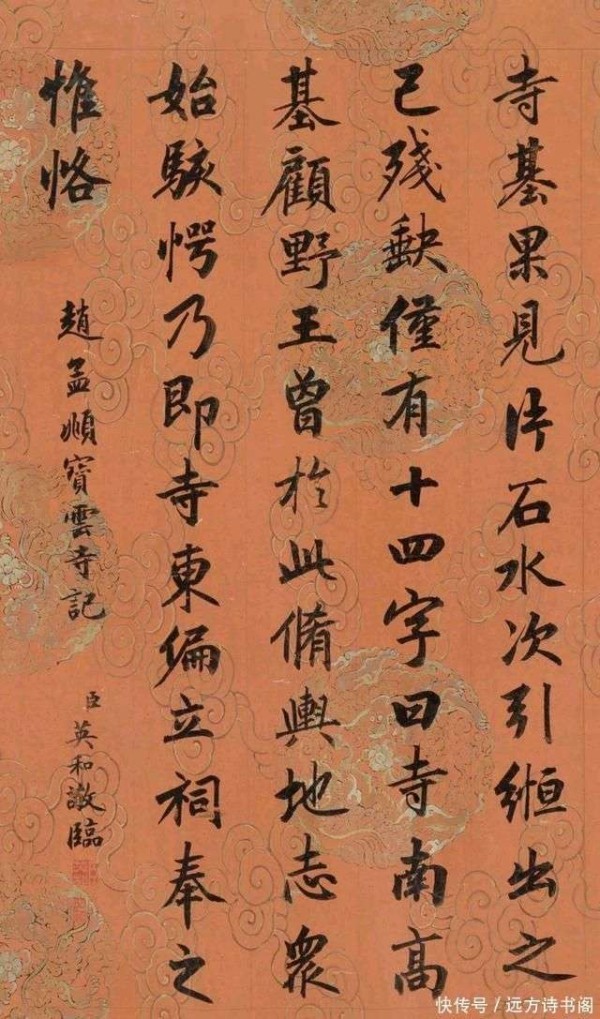 寺基果見片石水次引縆出之
已殘缺僅有十四字曰寺南高
基顧野王曾於此脩輿地志眾
始駭愕乃即寺東偏立祠奉之
惟恪
趙孟頫寶雲寺記
臣英和敬臨
快传号/远方诗书阁